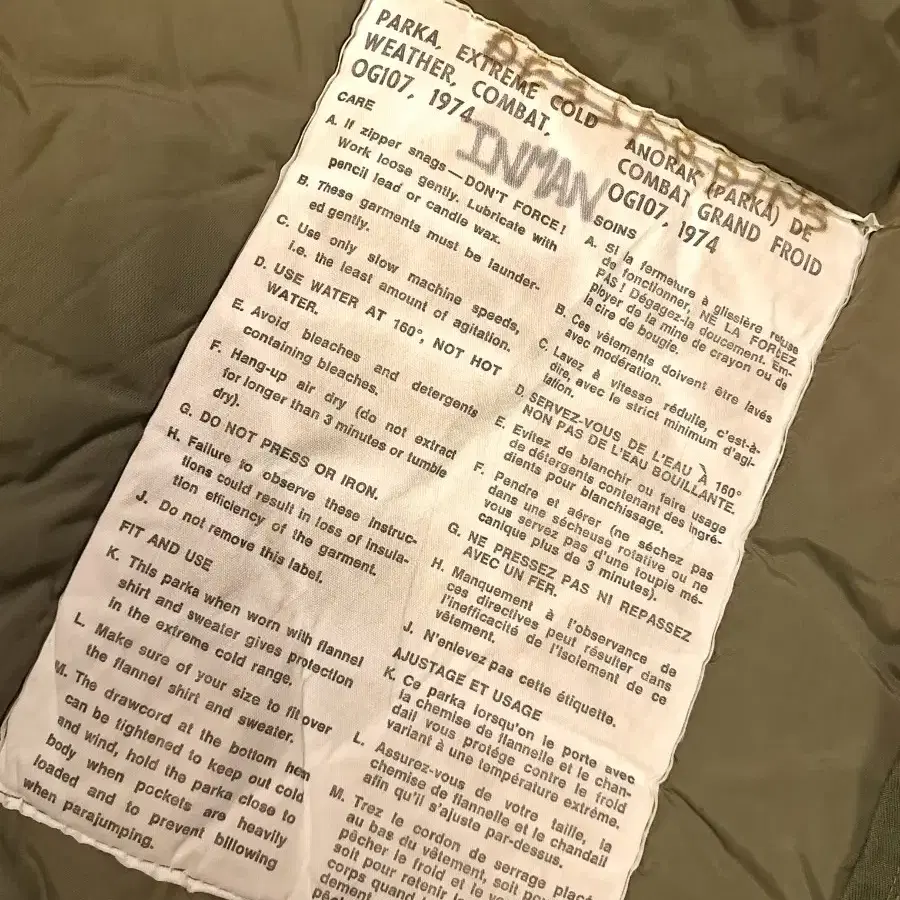 PARKA, EXTREME COLD
WEATHER, COMBAT,
OG107, 1974
INMAN
CARE
A. If zipper snags—DON'T FORCE!
Work loose gently. Lubricate with
pencil lead or candle wax.
B. These garments must be launder-
ed gently.
C. Use only slow machine speeds,
i.e. the least amount of agitation.
D. USE WATER AT 160°, NOT HOT
WATER.
E. Avoid bleaches and detergents
containing bleaches.
F. Hang-up air dry (do not extract
for longer than 3 minutes or tumble
dry).
G. DO NOT PRESS OR IRON.
H. Failure to observe these instruc-
tions could result in loss of insula-
tion efficiency of the garment.
J. Do not remove this label.
FIT AND USE
K. This parka when worn with flannel
shirt and sweater gives protection
in the extreme cold range.
L. Make sure of your size to fit over
the flannel shirt and sweater.
M. The drawcord at the bottom hem
can be tightened to keep out cold
and wind, hold the parka close to
body when pockets are heavily
loaded and to prevent billowing
when parajumping.
ANORAK (PARKA) DE
COMBAT GRAND FROID
OG107, 1974
SOINS
A. Si la fermeture à glissière refuse
de fonctionner, NE LA FORCEZ
PAS! Dégagez-la doucement. Em-
ployer de la mine de crayon ou de
la cire de bougie.
B. Ces vêtements doivent être lavés
avec modération.
C. Lavez à vitesse réduite, c'est-à-
dire, avec le strict minimum d'agi-
tation.
D. SERVEZ-VOUS DE L'EAU À 160°
NON PAS DE L'EAU BOUILLANTE.
E. Evitez de blanchir ou faire usage
de détergents contenant des ingré-
dients pour blanchissage.
F. Pendre et aérer (ne séchez pas
dans une sécheuse rotative ou ne
vous servez pas d'une toupie mé-
canique plus de 3 minutes).
G. NE PRESSEZ PAS NI REPASSEZ
AVEC UN FER.
H. Manquement à l'observance de
ces directives peut résulter dans
l'inefficacité de l'isolement de ce
vêtement.
J. N'enlevez pas cette étiquette.
AJUSTAGE ET USAGE
K. Ce parka lorsqu'on le porte avec
la chemise de flannelle et le chan-
dail vous protége contre le froid
variant à une température extrême.
L. Assurez-vous de votre taille, la
chemise de flannelle et le chandail
afin qu'il s'ajuste par-dessus.
M. Trez le cordon de serrage placé
au bas du vêtement, soit pou
pêcher le froid et le v
soit pour retenir le
corps quand
dement